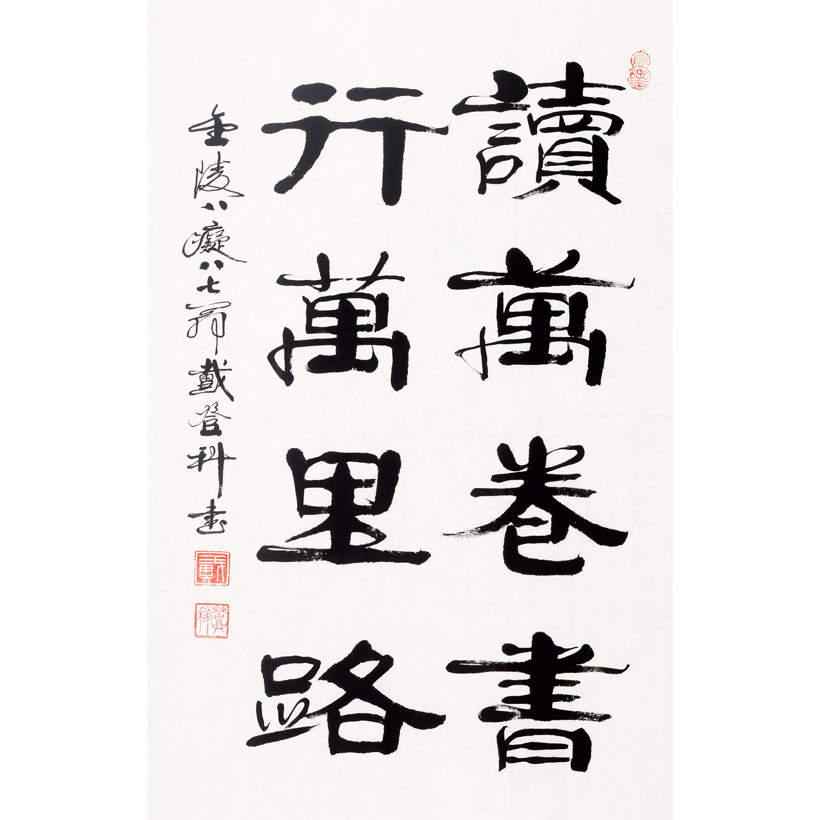 讀萬卷書
行萬里路
金陵八癡八七翁戴登科書